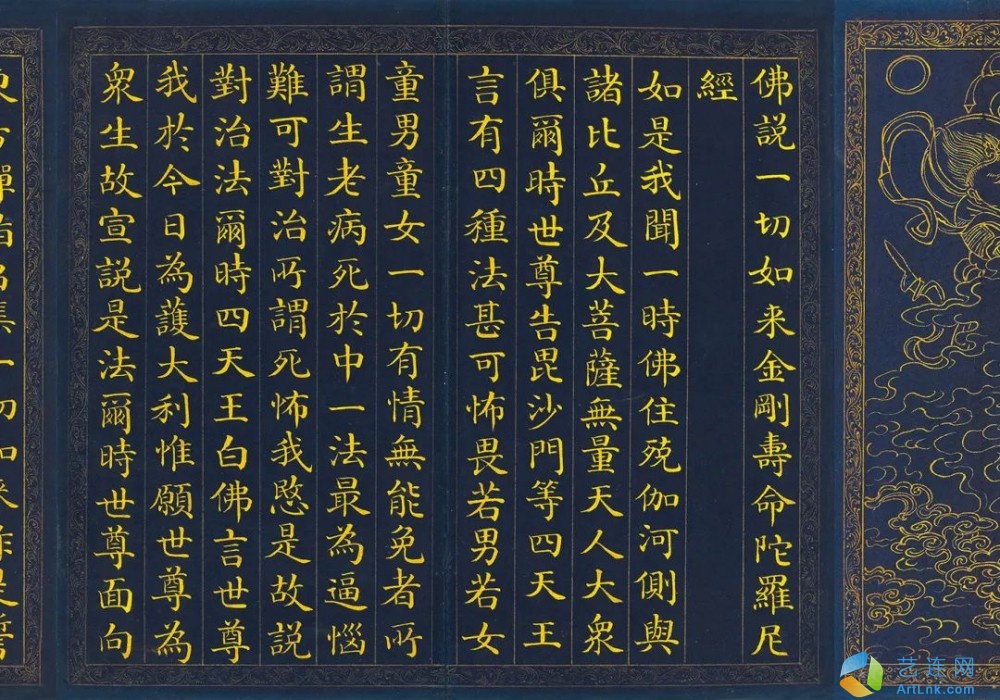 佛說一切如来金剛壽命陀羅尼
經
如是我聞一時佛住殑伽河側與
諸比丘及大菩薩無量天人大衆
俱爾時世尊告毘沙門等四天王
言有四種法甚可怖畏若男若女
童男童女一切有情無能免者所
謂生老病死於中一法最為逼惱
難可對治所謂死怖我愍是故説
對治法爾時四天王白佛言世尊
我於今日為護大利惟願世尊為
衆生故宣説是法爾時世尊面向
艺连网
ArtLnk.com